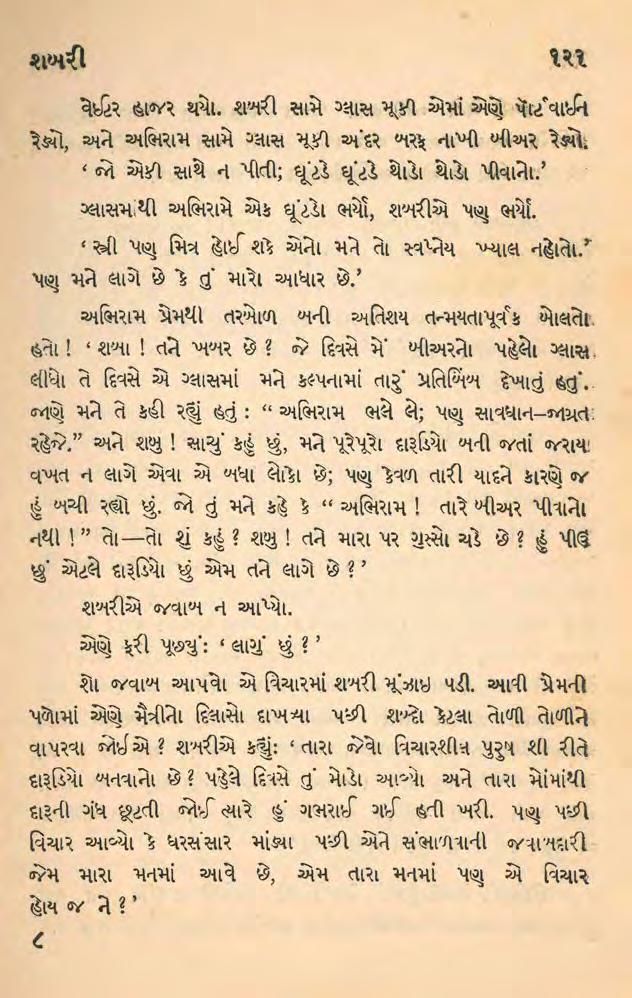 શબરી ૧૨૧
વેઈટર હાજર થયો. શબરી સામે ગ્લાસ મૂકી એમાં એણે પૉર્ટવાઈન
રેડ્યો, અને અભિરામ સામે ગ્લાસ મૂકી અંદર બરફ નાખી બીઅર રેડ્યો.
‘ જો એકી સાથે ન પીતી; ઘૂંટડે ઘૂંટડે થોડો થોડો પીવાનો.’
ગ્લાસમાંથી અભિરામે એક ઘૂંટડો ભર્યો, શબરીએ પણ ભર્યો.
‘ સ્ત્રી પણ મિત્ર હોઈ શકે એનો મને તો સ્વપ્નેય ખ્યાલ નહોતો.’
પણ મને લાગે છે કે તું મારો આધાર છે.’
અભિરામ પ્રેમથી તરબોળ બની અતિશય તન્મયતાપૂર્વક બોલતો
હતો ! ‘ શબા ! તને ખબર છે ? જે દિવસે મેં બીઅરનો પહેલો ગ્લાસ
લીધો તે દિવસે એ ગ્લાસમાં મને કલ્પનામાં તારું પ્રતિબિંબ દેખાતું હતું.
જાણે મને તે કહી રહ્યું હતું : “ અભિરામ ભલે લે; પણ સાવધાન–જાગ્રત
રહેજે.” અને શબુ ! સાચું કહું છું, મને પૂરેપૂરો દારૂડિયો બની જતાં જરાય
વખત ન લાગે એવા એ બધા લોકો છે; પણ કેવળ તારી યાદને કારણે જ
હું બચી રહ્યો છું. જો તું મને કહે કે “ અભિરામ ! તારે બીઅર પીવાનો
નથી ! ” તો—તો શું કહું ? શબુ ! તને મારા પર ગુસ્સો ચડે છે ? હું પીઉં
છું એટલે દારૂડિયો છું એમ તને લાગે છે ? ’
શબરીએ જવાબ ન આપ્યો.
એણે ફરી પૂછ્યું: ‘ લાગું છું ? ’
શો જવાબ આપવો એ વિચારમાં શબરી મૂંઝાઇ પડી. આવી પ્રેમની
પળોમાં એણે મૈત્રીનો દિલાસો દાખવ્યા પછી શબ્દો કેટલા તોળી તોળીને
વાપરવા જોઈએ ? શબરીએ કહ્યું: ‘ તારા જેવો વિચારશીલ પુરુષ શી રીતે
દારૂડિયો બનવાનો છે ? પહેલે દિવસે તું મોડો આવ્યો અને તારા મોંમાંથી
દારૂની ગંધ છૂટતી જોઈ ત્યારે હું ગભરાઈ ગઈ હતી ખરી. પણ પછી
વિચાર આવ્યો કે ઘરસંસાર માંડ્યા પછી એને સંભાળવાની જવાબદારી
જેમ મારા મનમાં આવે છે, એમ તારા મનમાં પણ એ વિચાર
હોય જ ને ? ’
૮